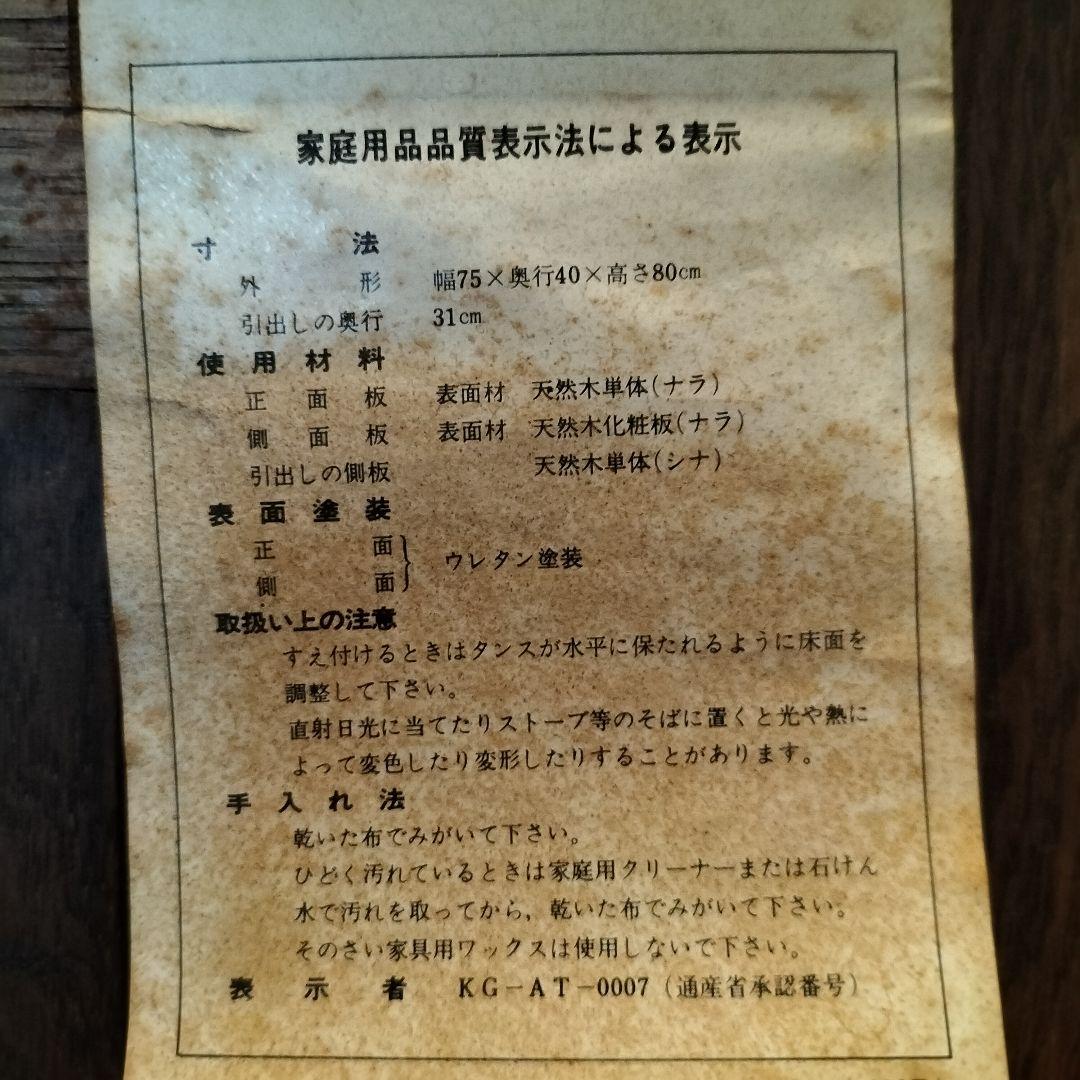 家庭用品品質表示法による表示
寸法
外形 幅75×奥行40×高さ80cm
引出しの奥行 31cm
使用材料
正面板 表面材 天然木単体(ナラ)
側面板 表面材 天然木化粧板(ナラ)
引出しの側板 天然木単体(シナ)
表面塗装
正面
側面 } ウレタン塗装
取扱い上の注意
すえ付けるときはタンスが水平に保たれるように床面を
調整して下さい。
直射日光に当てたりストーブ等のそばに置くと光や熱に
よって変色したり変形したりすることがあります。
手入れ法
乾いた布でみがいて下さい。
ひどく汚れているときは家庭用クリーナーまたは石けん
水で汚れを取ってから，乾いた布でみがいて下さい。
そのさい家具用ワックスは使用しないで下さい。
表示者 KG−AT−0007（通産省承認番号）